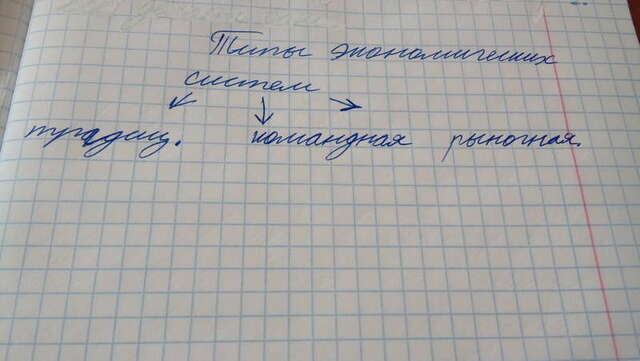 Типы экономических
систем
традиц. командная рыночная.